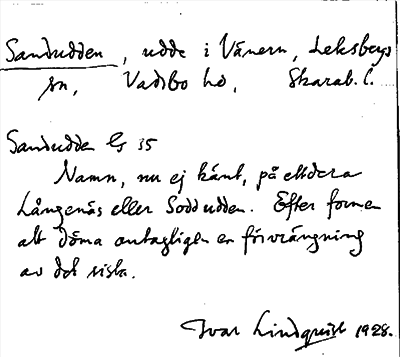 Sandudden, udde i Vänern, Leksbergs
sn, Vadsbo hd, Skarab. l.
Sandudden G 35
Namn, nu ej känt, på ettdera
Långenäs eller Soddudden. Efter formen
att döma antagligen en förvrängning
av det sista.
Ivar Lindquist 1928.